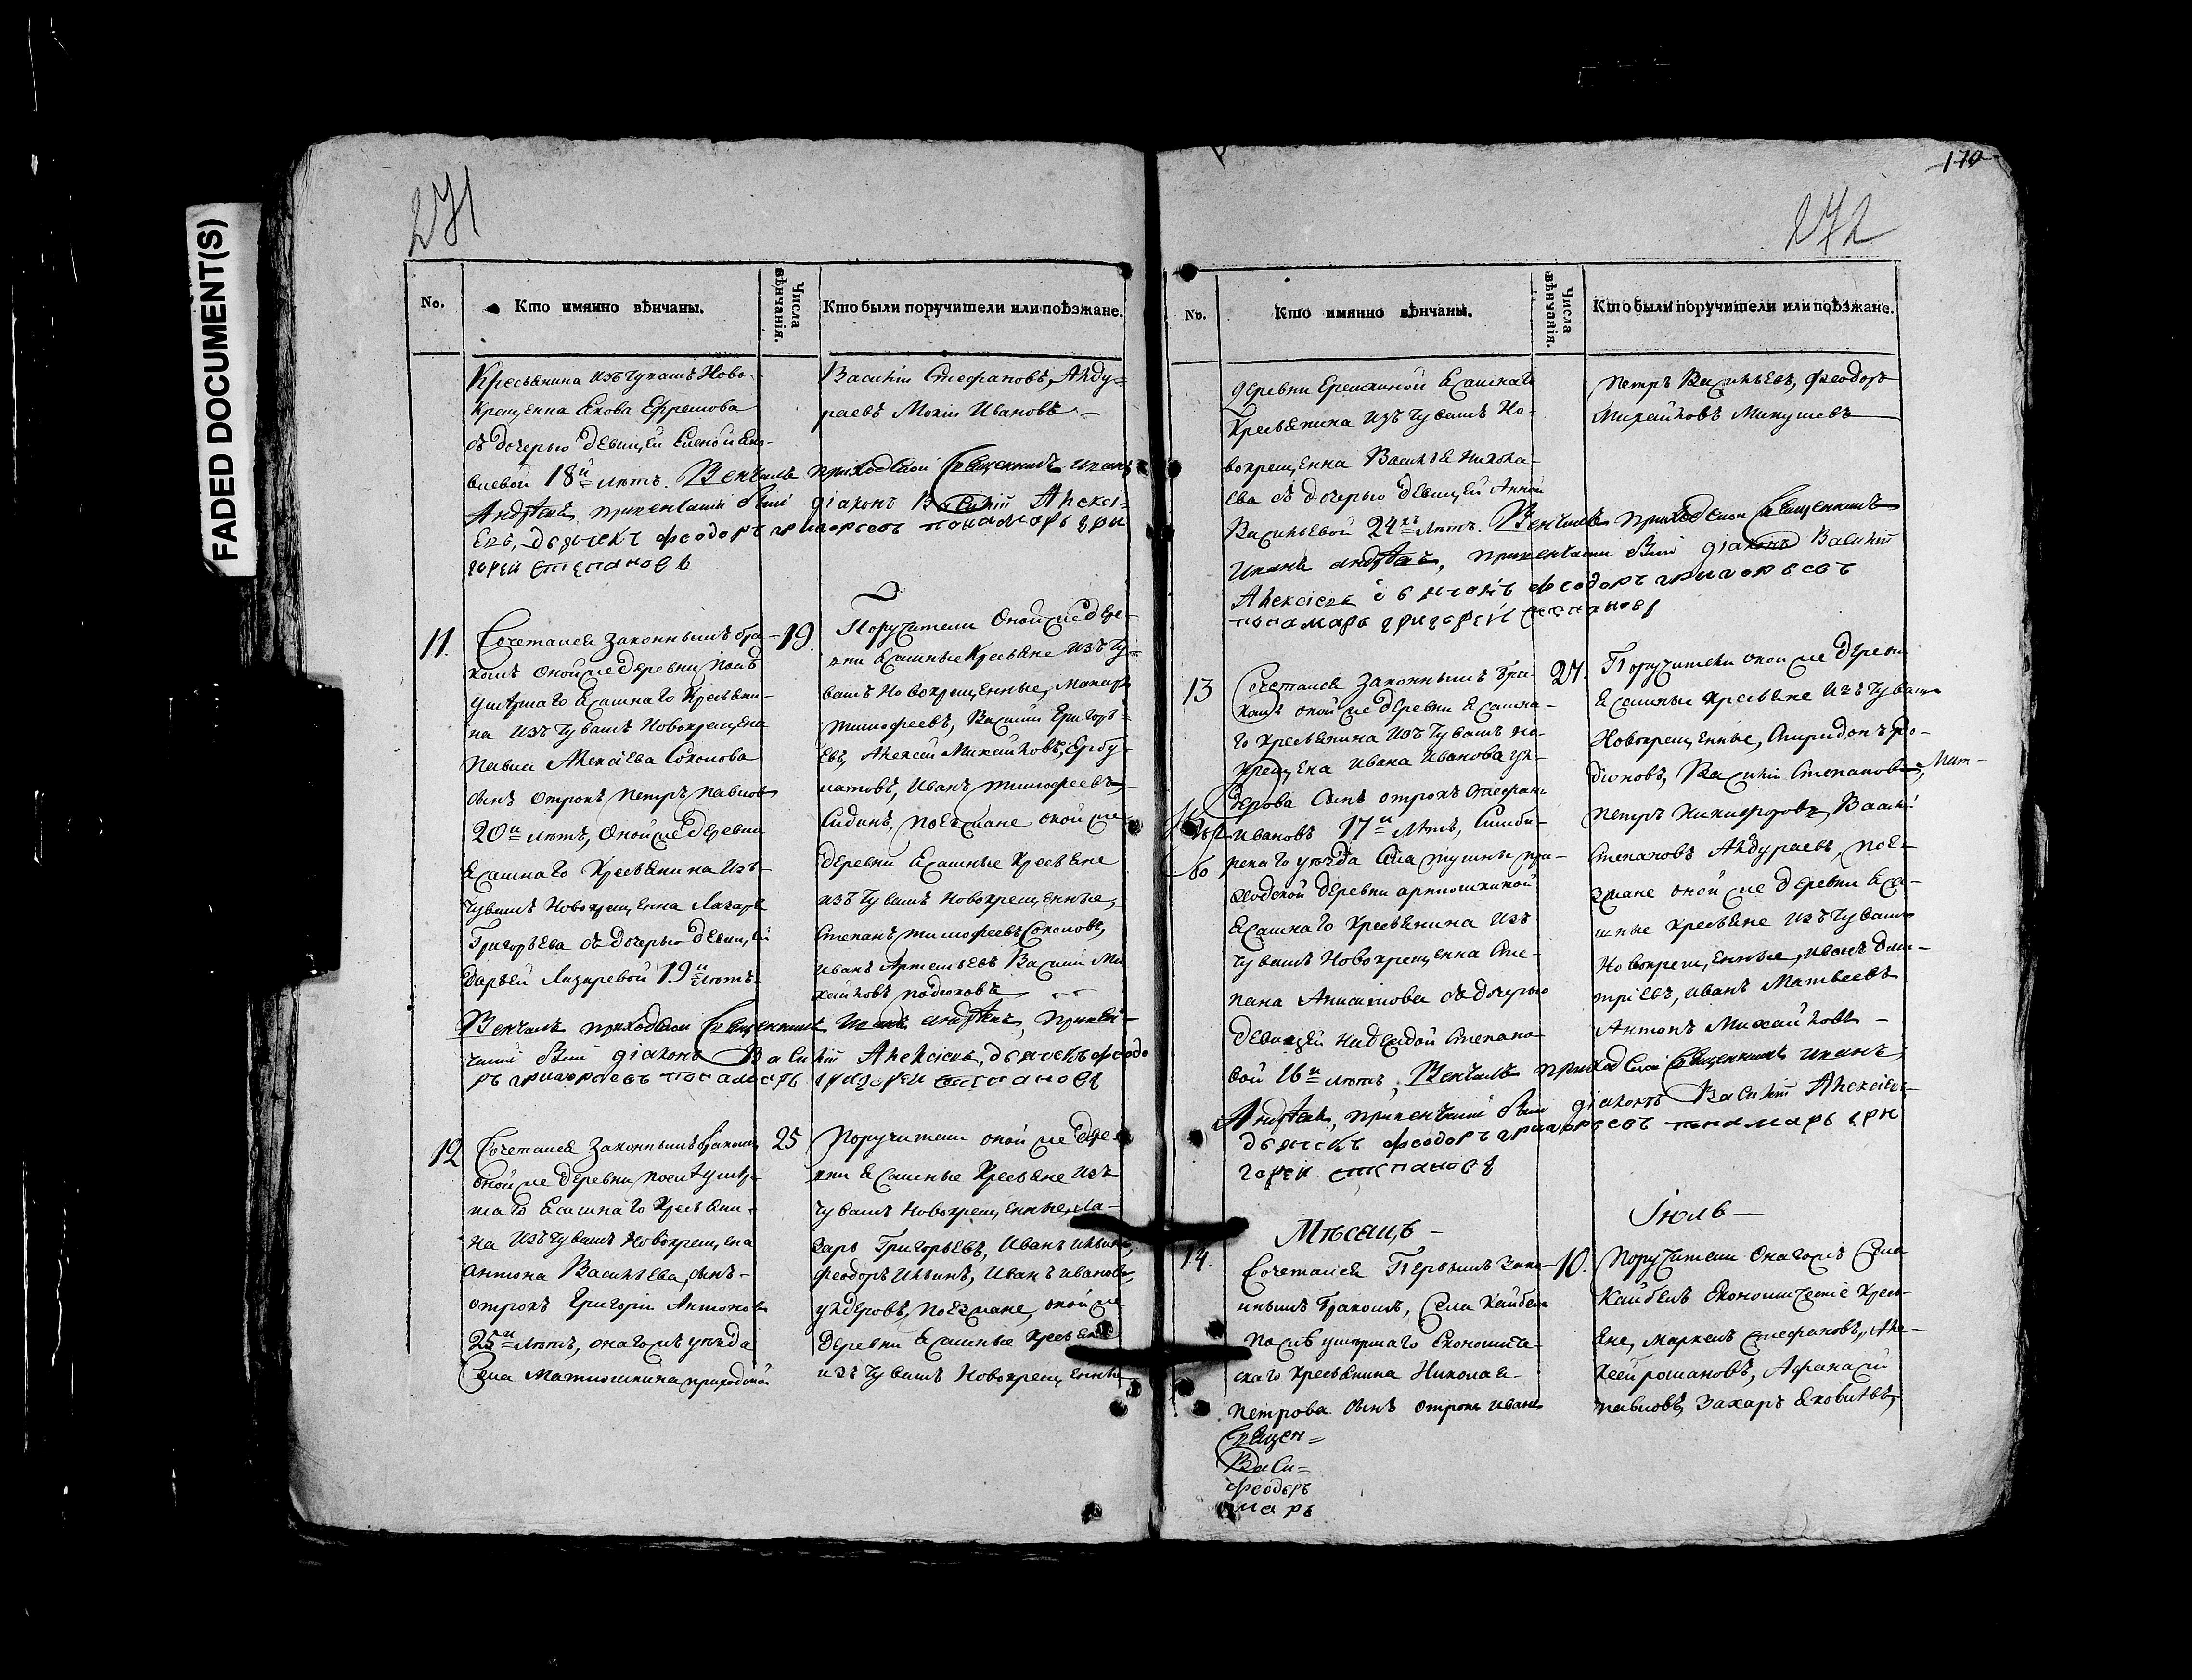 FADED DOCUMENT(S)
271
No.
Кто имянно вѣнчаны.
Числа вѣнчанія.
Кто были поручители или поѣзжане.
Кресьянина изъ чувашъ Ново-
крещенна Якова Ефремова
съ дочерью девицей Еленой Яко-
влевой 18и лѣтъ. Венчалъ приходской Священникъ Иванъ
Андреевъ, при венчании были діаконъ Василій Алексі-
евъ, дьячекъ Феодоръ Григорьевъ пономарь Гри
горей Степановъ
Василій Стефановъ, Анду-
раевъ Мокій Ивановъ
11.
Сочетался законнымъ бра-
комъ оной же деревни
умершаго ясашнаго кресьяни-
на изъ чувашъ новокрещена
Павла Алексіева Соколова
сынъ отрокъ Петръ Павловъ
20и лѣтъ, оной же деревни
ясашнаго кресьянина изъ
чувашъ новокрещенна Лазаря
Григорьева съ дочерью девицей
Дарьей Лазаревой 19и лѣтъ.
Венчалъ приходской Священникъ Иванъ Андреевъ, при вен-
чании были діаконъ Василій Алексіевъ, дьячекъ Феодо
ръ Григорьевъ пономарь Григорей Степановъ
19.
Поручители оной же дере-
вни ясашные кресьяне изъ чу-
вашъ новокрещенные, Макаръ
Тимофеевъ, Василій Григорь-
евъ, Алексей Михайловъ,
Иванъ Тимофеевъ
поезжане оной же
деревни ясашные кресьяне
изъ чувашъ новокрещенные,
Степанъ Тимофеевъ Соколовъ,
Иванъ Артемьевъ Василій Ми
хайловъ
12
Сочетался законнымъ бракомъ
оной же деревни после умер-
шаго ясашнаго кресьяни-
на изъ чувашъ новокрещена
Антона Васильева, сынъ
отрокъ Григорій Антоновъ
25и лѣтъ, онагожъ уезда
села Матюшкина приходской
25
Поручители оной же дере-
вни ясашные кресьяне изъ
чувашъ новокрещенные, Ла-
заръ Григорьевъ, Иванъ Ильинъ,
Феодоръ Ильинъ, Иванъ Ивановъ,
поезжане, оной же
деревни ясашные кресьяне
изъ чувашъ новокрещенные
170
272
No.
Кто имянно вѣнчаны.
Числа вѣнчанія.
Кто были поручители или поѣзжане.
деревни Еремкиной ясашнаго
кресьянина изъ чувашъ но-
вокрещенна Василья Никола-
ева съ дочерью девицей Анной
Васильевой 24хъ лѣтъ. Венчалъ приходской Священникъ
Иванъ Андреевъ, при венчании были діаконъ Василій
Алексіевъ дьячокъ Феодоръ Григорьевъ
пономарь Григорей Степановъ
Петръ Васильевъ, Феодоръ
Михайловъ
13
Сочетался законнымъ бра-
комъ оной же деревни ясашна-
го кресьянина изъ чувашъ но-
крещена Ивана Иванова
сынъ отрокъ Стефанъ
Ивановъ 17и лѣтъ, Симби-
рскаго уезда села при-
ходской деревни Артюшкиной
ясашнаго кресьянина изъ
чувашъ новокрещенна Сте-
пана Анисимова съ дочерью
девицей Надеждой Степано-
вой 16и лѣтъ, Венчалъ приходской Священникъ Иванъ
Андреевъ, при венчании были діаконъ Василій Алексіевъ
дьячекъ Феодоръ Григорьевъ пономарь Гри
горей Степановъ
27.
Поручители оной же деревни
ясашные кресьяне изъ чувашъ
новокрещенные, Спиридонъ Ро-
діоновъ, Василій Степановъ,
Петръ Никифоровъ, Василій
Степановъ Андураевъ, пое-
зжане оной же деревни яса-
шные кресьяне изъ чувашъ
новокрещенные, Иванъ Дми-
тріевъ, Иванъ Матвеевъ
Антонъ Михайловъ
Мѣсяцъ
Іюль
14.
Сочетался первымъ зако-
ннымъ бракомъ, села Кайбелъ
после умершаго економиче-
скаго кресьянина Николая
Петрова сынъ отрокъ Иванъ
Священ-
Васи-
Феодоръ
марь
10.
Поручители онагожъ села
Кайбелъ економическіе кресь-
яне, Маркелъ Стефановъ, Але-
ксей Романовъ, Афанасій
Павловъ, Захаръ Яковлевъ,